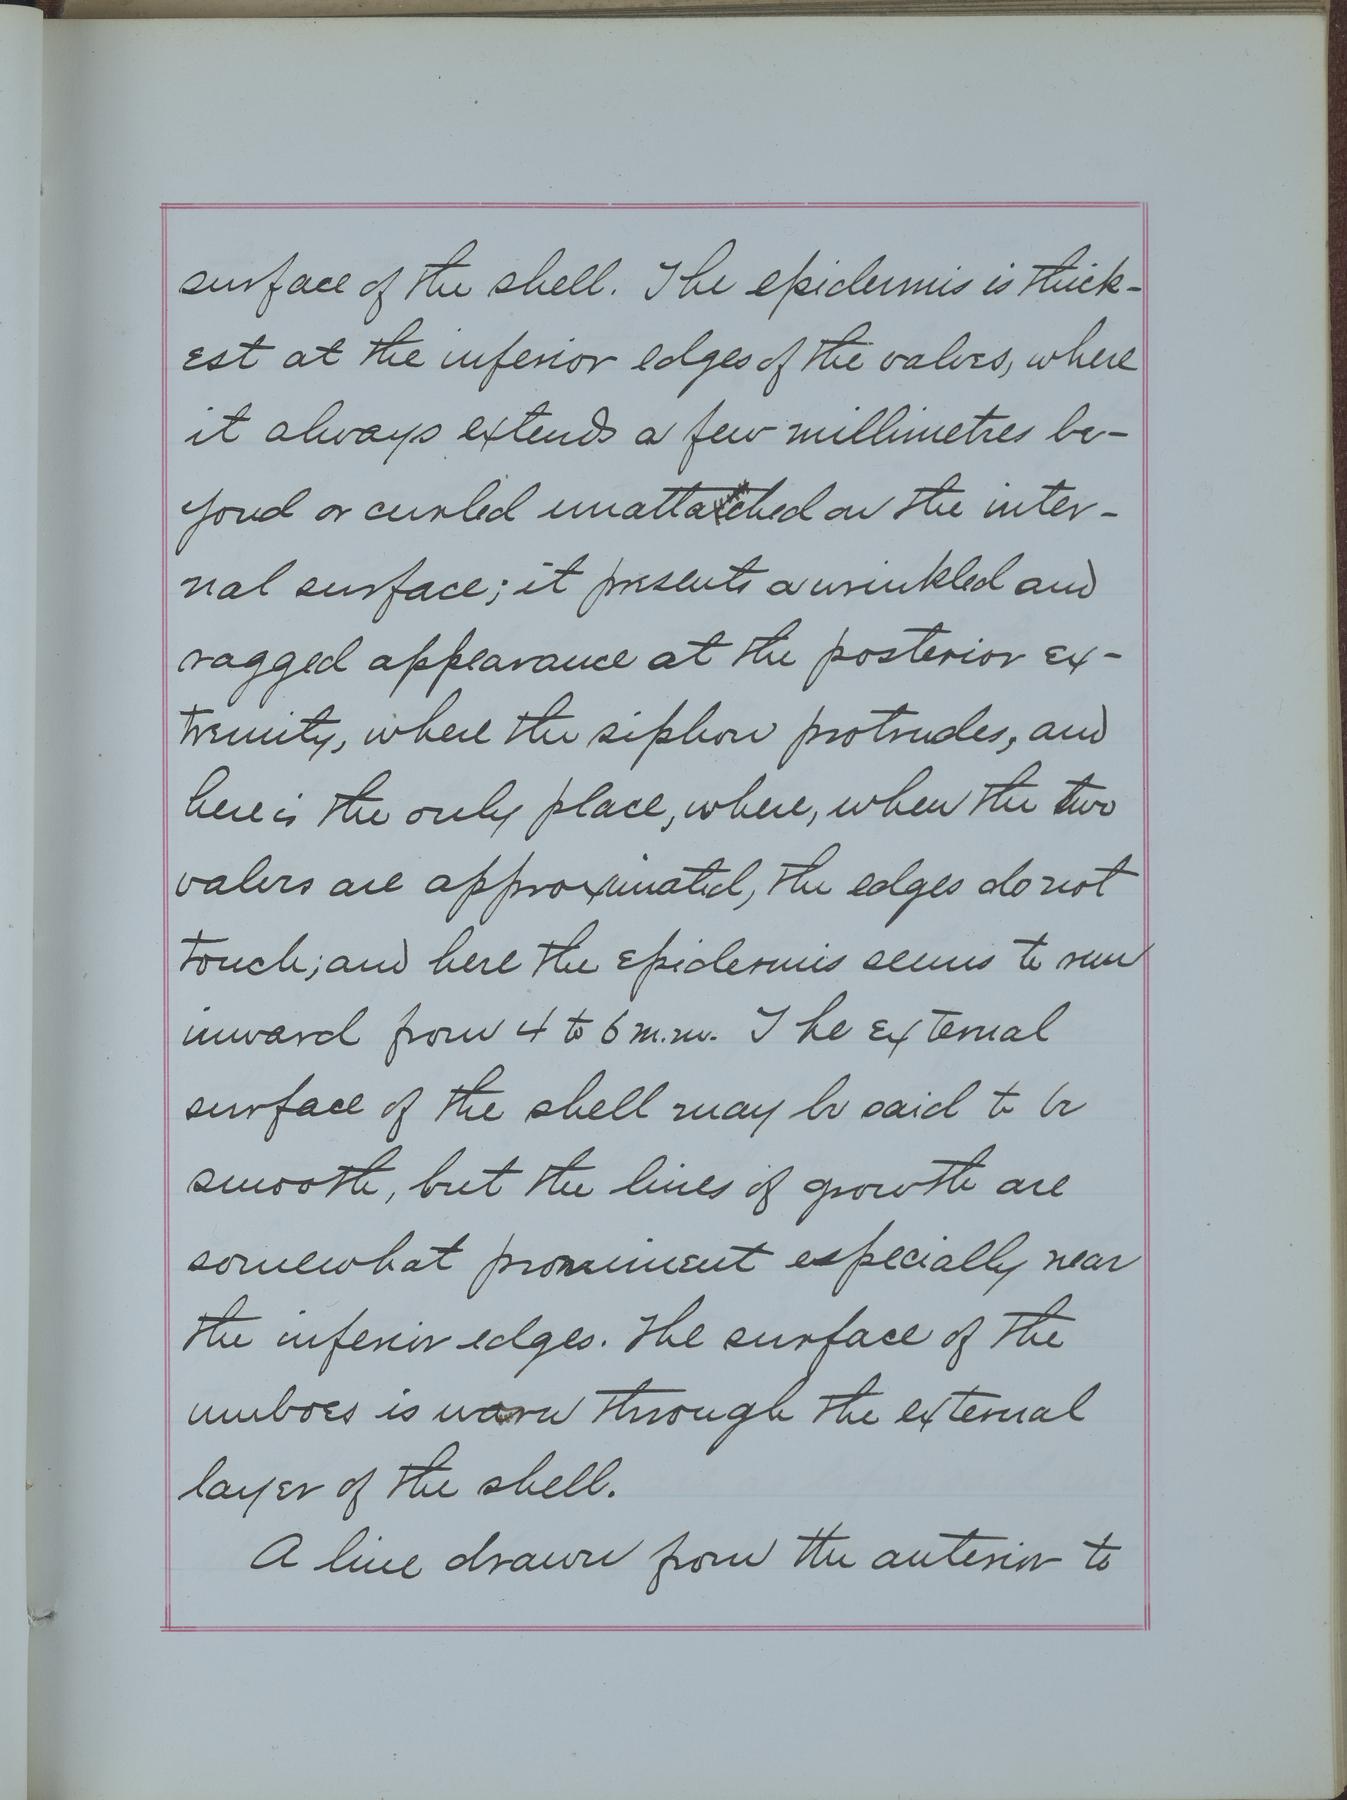 surface of the shell. The epidermis is thick-
est at the inferior edges of the valves, where
it always extends a few millimetres be-
yond or curled unattached on the inter-
nal surface; it presents a wrinkled and
ragged appearance at the posterior ex-
tremity, where the siphon protrudes, and
here is the only place, where, when the two
valves are approximated, the edges do not
touch; and here the epidermis seems to run
inward from 4 to 6 m.m. The external
surface of the shell may be said to be
smooth, but the lines of growth are
somewhat prominent especially near
the inferior edges. The surface of the
umboes is worn through the external
layer of the shell.
A line drawn from the anterior to